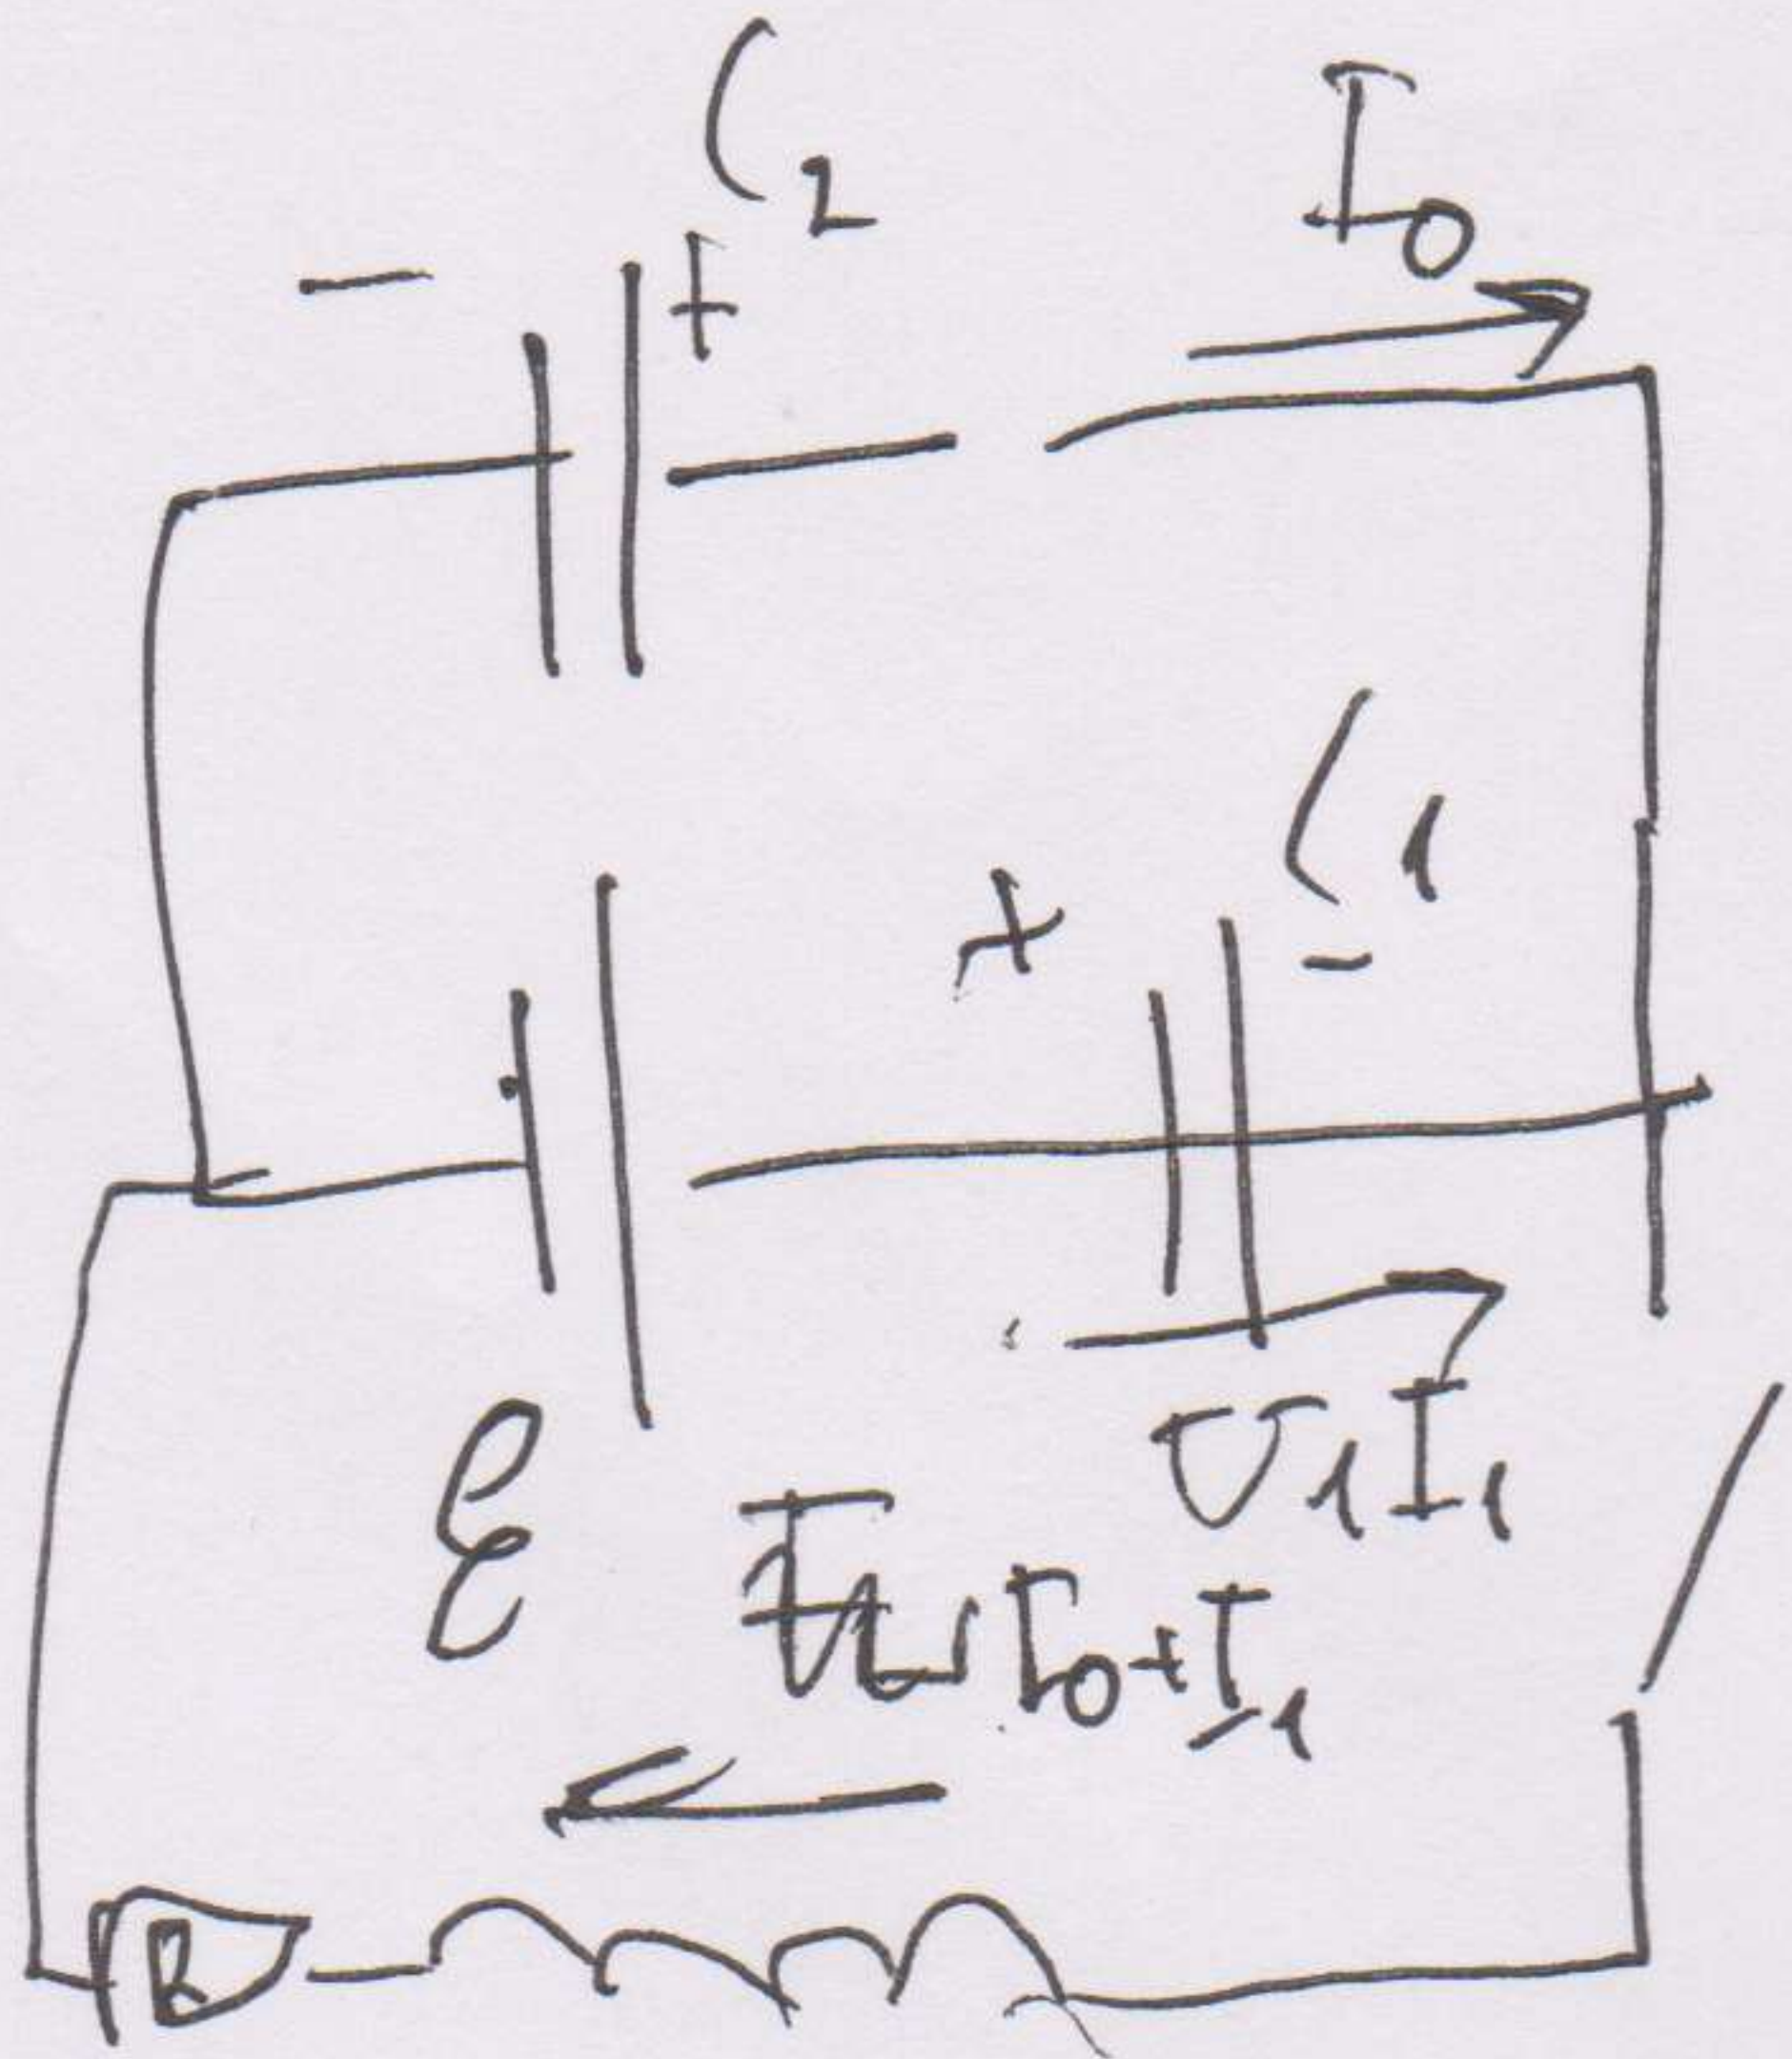 C₂
I₀
- +
C₁
+ -
ℰ
U₁ I₁
I₀+I₁
R